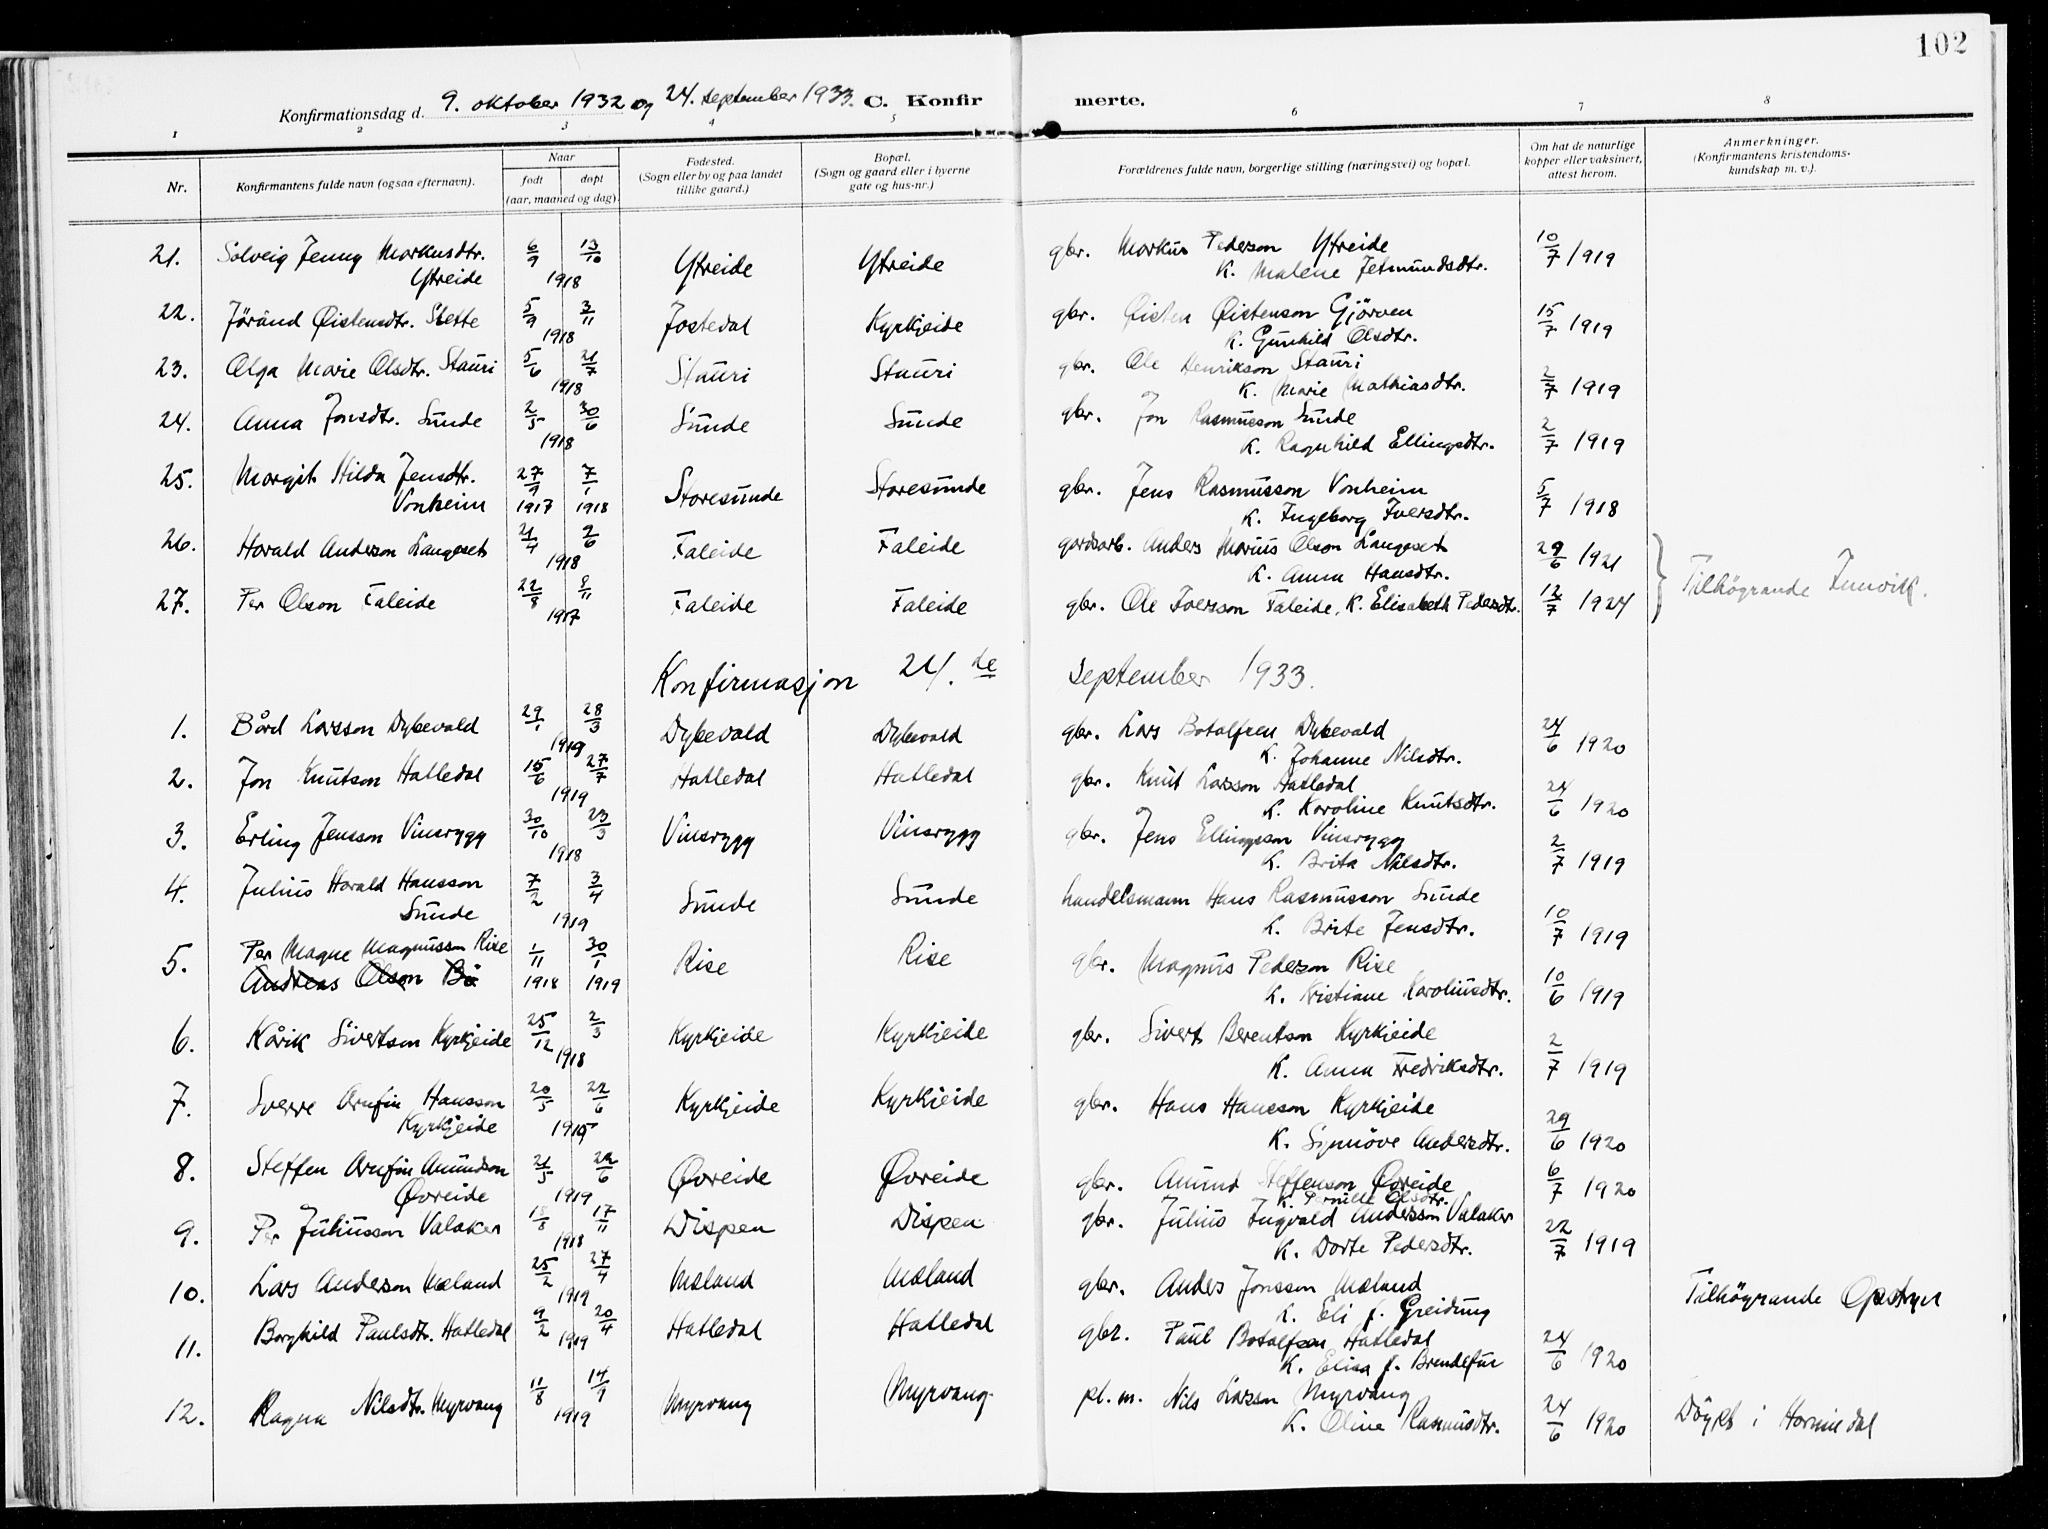 102
Konfirmationsdag d. 9. oktober 1932 og 24. september 1933. C. Konfirmerte.
1 2 3 4 5 6 7 8
Nr. Konfirmantens fulde navn (ogsaa efternavn). Naar født døpt (aar, maaned og dag) Fødested. (Sogn eller by og paa landet tillike gaard.) Bopæl. (Sogn og gaard eller i byerne gate og hus-nr.) Forældrenes fulde navn, borgerlige stilling (næringsvei) og bopæl. Om hat de naturlige kopper eller vaksinert, attest herom. Anmerkninger. (Konfirmantens kristendoms-kundskap m. v.).
21. Solveig Jenny Markusdtr. 6/9 13/10 Ytreide Ytreide gbr. Markus Pederson Ytreide 10/7 1919
Ytreide 1918 K. Malene Jetmundsdtr.
22. Jörånd Øistensdtr. Slette 5/9 3/11 Jostedal Kyrkjeide gbr. Øisten Øistenson Gjörven 15/7 1919
1918 K. Gunhild Olsdtr.
23. Olga Marie Olsdtr. Stauri 5/6 21/7 Stauri Stauri gbr. Ole Henrikson Stauri
1918 K. Marie Mathiasdtr. 2/7 1919
24. Anna Jonsdtr. Sunde 2/5 30/6 Sunde Sunde gbr. Jon Rasmusson Sunde
1918 K. Ragnhild Ellingsdtr. 2/7 1919
25. Margit Hilda Jensdtr. 27/9 7/1 Storesunde Storesunde gbr. Jens Rasmusson Vonheim 5/7 1918
Vonheim 1917 1918 K. Ingeborg Iversdtr.
26. Harald Anderson Langeset 21/4 2/6 Faleide Faleide gardsarb. Anders Marius Olson Langeset 29/6 1921
1918 K. Anna Hansdtr. Tilhögrande Innvik.
27. Per Olson Faleide 22/8 8/11 Faleide Faleide gbr. Ole Iversson Faleide, K. Elisabeth Pedersdtr. 12/7 1924
1917
Konfirmasjon 24.de september 1933.
1. Bård Larsson Dybevald 29/1 28/3 Dybevald Dybevald gbr. Lars Botolfsen Dybevald 24/6 1920
1919 K. Johanne Nilsdtr.
2. Jon Knutson Hatledal 15/6 27/7 Hatledal Hatledal gbr. Knut Larsson Hatledal
1919 K. Karoline Knutsdtr. 24/6 1920
3. Erling Jensson Vinsrygg 30/10 23/3 Vinsrygg Vinsrygg gbr. Jens Ellingsson Vinsrygg
1918 K. Brita Nilsdtr. 2/7 1919
4. Julius Harald Hansson 7/2 3/4 Sunde Sunde handelsmann Hans Rasmusson Sunde
Sunde 1919 K. Brite Jensdtr. 10/7 1919
5. Per Magne Magnusson Rise 1/11 30/1 Rise Rise gbr. Magnus Pederson Rise
Andreas Olson Bö 1918 1919 K. Kristiane Karoliusdtr. 10/6 1919
6. Kårik Sivertson Kyrkjeide 25/12 2/3 Kyrkjeide Kyrkjeide gbr. Sivert Berentson Kyrkjeide
1918 K. Anna Fredriksdtr. 2/7 1919
7. Sverre Arnfin Hansson 20/5 22/6 Kyrkjeide Kyrkjeide gbr. Hans Hansson Kyrkjeide
Kyrkjeide K. Synnöve Andersdtr. 29/6 1920
8. Steffen Arnfin Amundson 21/5 22/6 Øvreide Øvreide gbr. Amund Steffenson Øvreide 6/7 1920
Øvreide 1919 K. Pernille Olsdtr.
9. Per Juliusson Valaker 18/8 17/11 Dispen Dispen gbr. Julius Ingvald Andersson Valaker
1918 K. Dorte Pedersdtr. 22/7 1919
10. Lars Anderson Mæland 25/2 27/4 Mæland Mæland gbr. Anders Jonsson Mæland Tilhöyrande Opstryn
1919 K. Eli f. Greidung
11. Borghild Paulsdtr. Hatledal 9/2 20/4 Hatledal Hatledal gbr. Paul Botolfsen Hatledal 24/6 1920
1919 K. Elisa f. Brendefur
12. Ragna Nilsdtr. Myrvang 11/8 14/9 Myrvang Myrvang pl. m. Nils Larsson Myrvang 24/6 1920 Döypt i Hornindal
1919 K. Oline Rasmusdtr.